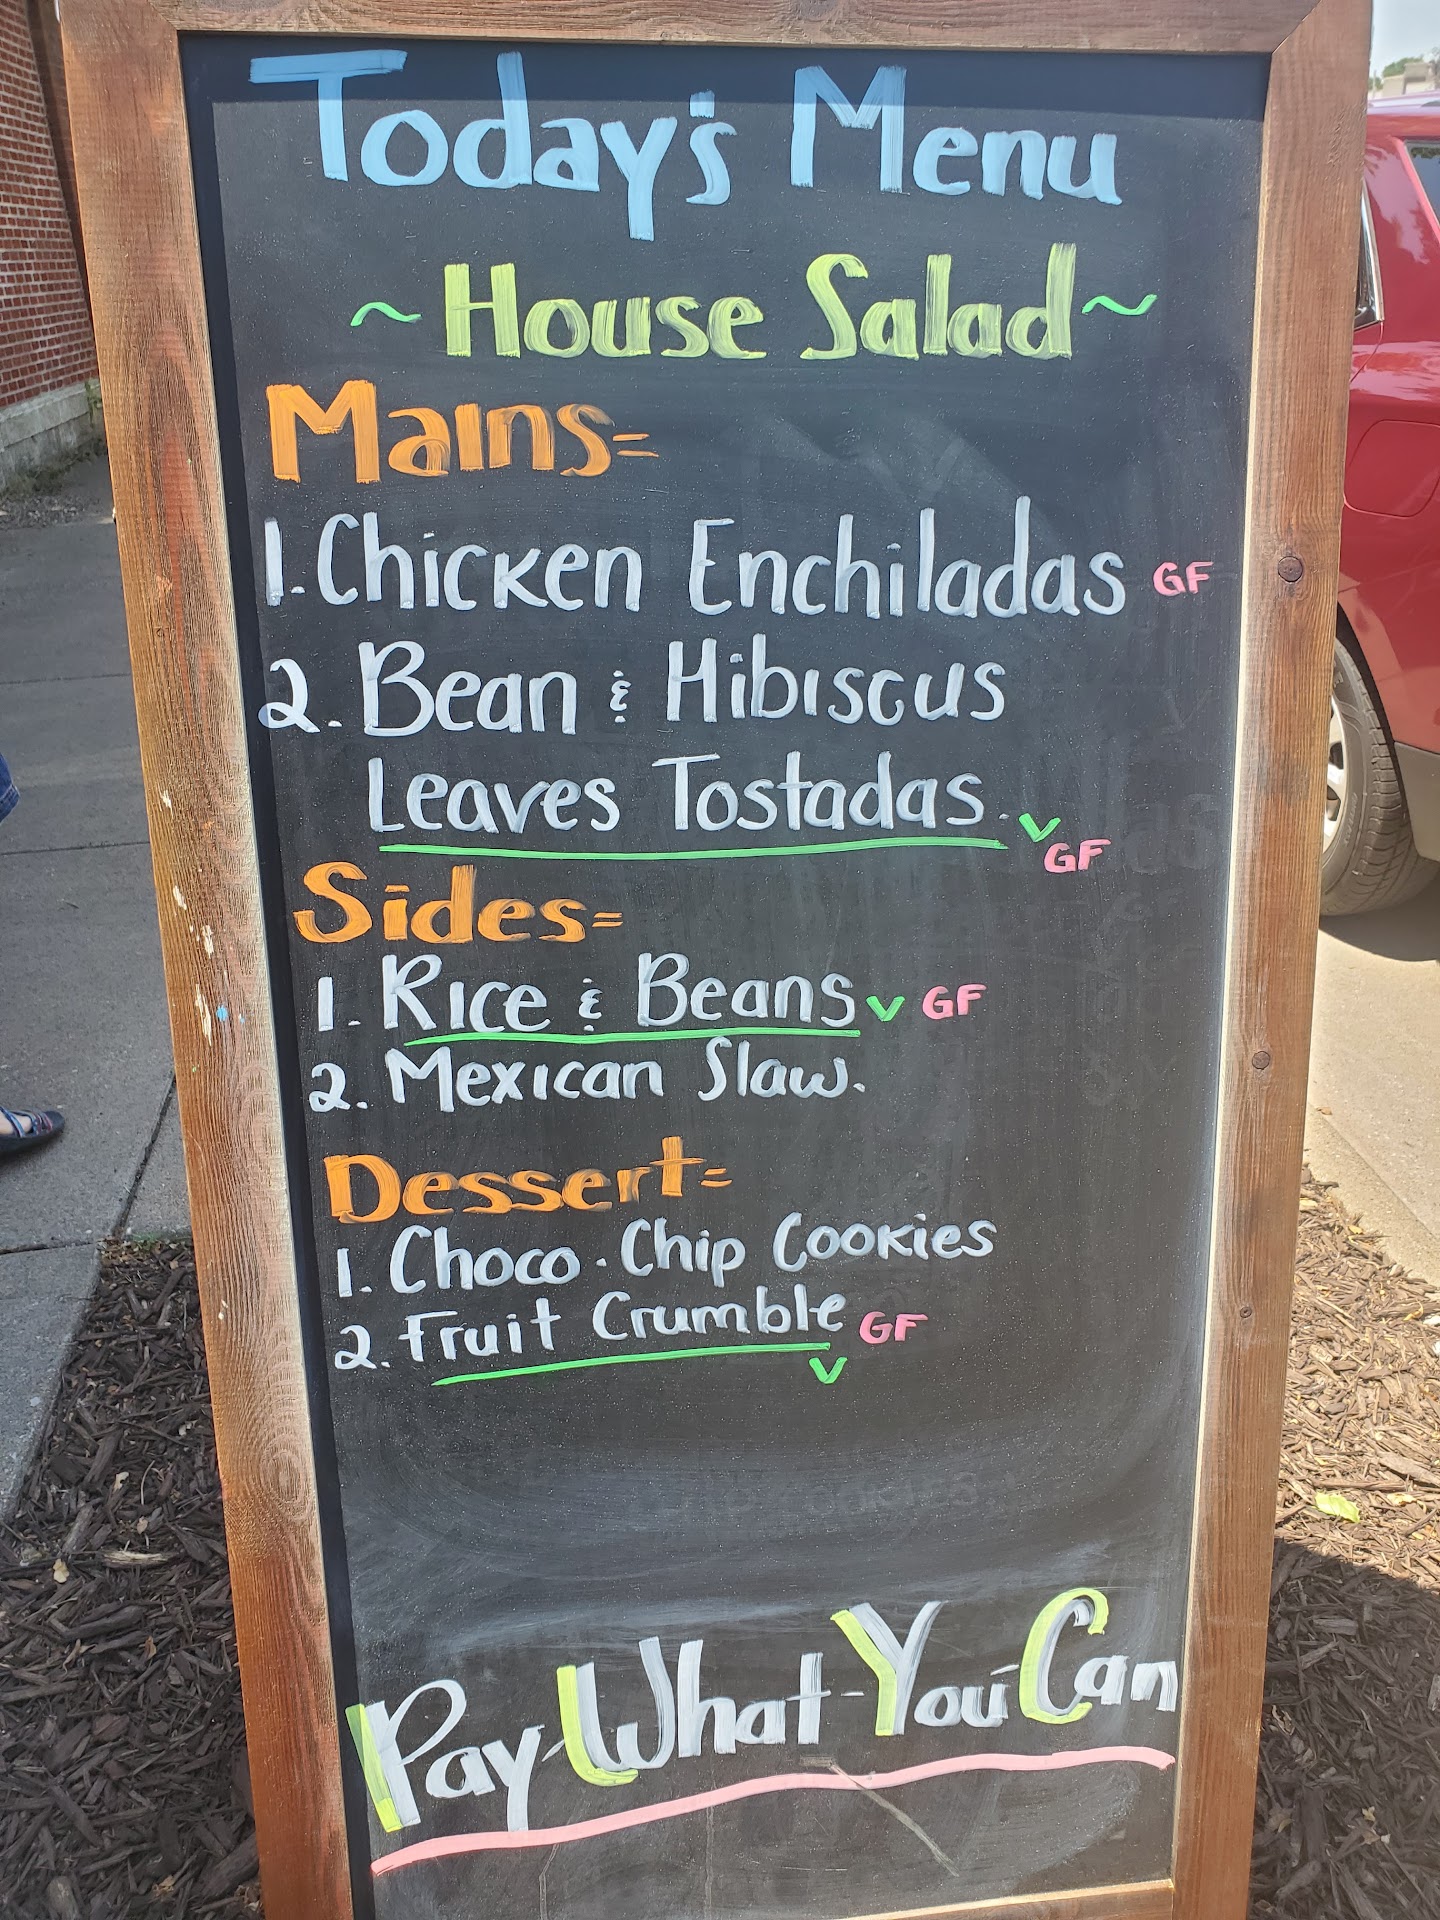 Today's Menu
~ House Salad ~
Mains=
1. Chicken Enchiladas GF
2. Bean & Hibiscus
Leaves Tostadas. V
GF
Sides=
1. Rice & Beans V GF
2. Mexican Slaw.
Dessert=
1. Choco-Chip Cookies
2. Fruit Crumble GF
V
Pay-What-You-Can